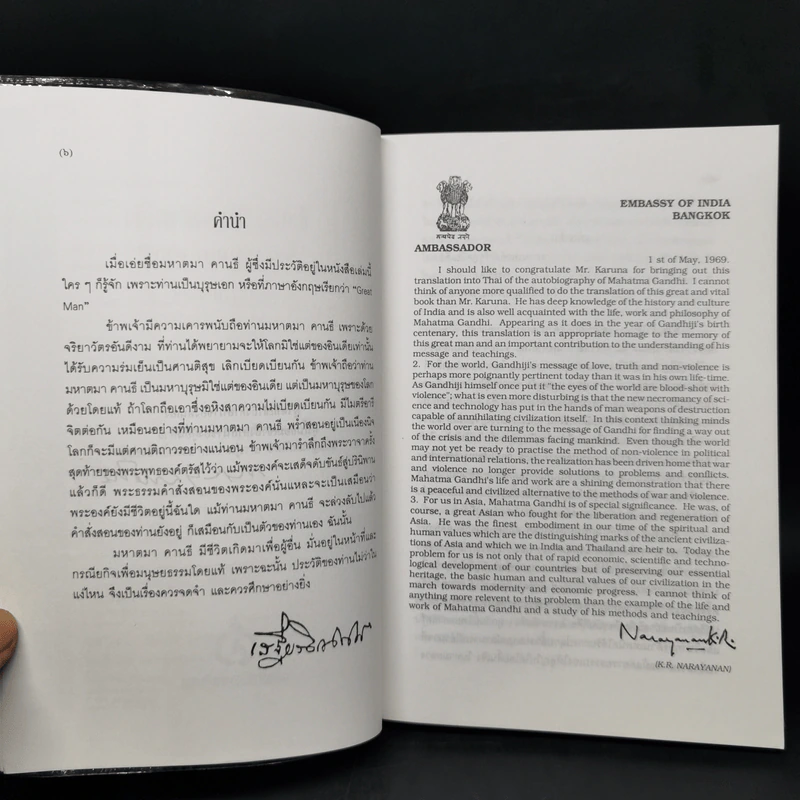 (๖)
คำนำ
เมื่อเอ่ยชื่อมหาตมา คานธี ผู้ซึ่งมีประวัติอยู่ในหนังสือเล่มนี้
ใคร ๆ ก็รู้จัก เพราะท่านเป็นบุรุษเอก หรือที่ภาษาอังกฤษเรียกว่า “Great
Man”
ข้าพเจ้ามีความเคารพนับถือท่านมหาตมา คานธี เพราะด้วย
จริยาวัตรอันดีงาม ที่ท่านได้พยายามจะให้โลกมิใช่แต่ของอินเดียเท่านั้น
ได้รับความร่มเย็นเป็นศานติสุข เลิกเบียดเบียนกัน ข้าพเจ้าถือว่าท่าน
มหาตมา คานธี เป็นมหาบุรุษมิใช่แต่ของอินเดีย แต่เป็นมหาบุรุษของโลก
ด้วยโดยแท้ ถ้าโลกถือเอาซึ่งอหิงสาความไม่เบียดเบียนกัน มีไมตรีอารี
จิตต่อกัน เหมือนอย่างที่ท่านมหาตมา คานธี พร่ำสอนอยู่เป็นเนืองนิจ
โลกก็จะมีแต่ศานติถาวรอย่างแน่นอน ข้าพเจ้ามารำลึกถึงพระวาจาครั้ง
สุดท้ายของพระพุทธองค์ตรัสไว้ว่า แม้พระองค์จะเสด็จดับขันธ์สู่ปรินิพพาน
แล้วก็ดี พระธรรมคำสั่งสอนของพระองค์นั่นแหละจะเป็นเสมือนว่า
พระองค์ยังมีชีวิตอยู่นี้ฉันใด แม้ท่านมหาตมา คานธี จะล่วงลับไปแล้ว
คำสั่งสอนของท่านยังอยู่ ก็เสมือนกับเป็นตัวของท่านเอง ฉันนั้น
มหาตมา คานธี มีชีวิตเกิดมาเพื่อผู้อื่น มั่นอยู่ในหน้าที่และ
กรณียกิจเพื่อมนุษยธรรมโดยแท้ เพราะฉะนั้น ประวัติของท่านไม่ว่าใน
แง่ไหน จึงเป็นเรื่องควรจดจำ และควรศึกษาอย่างยิ่ง
सत्यमेव जयते
EMBASSY OF INDIA
BANGKOK
AMBASSADOR
1 st of May, 1969.
I should like to congratulate Mr. Karuna for bringing out this
translation into Thai of the autobiography of Mahatma Gandhi. I cannot
think of anyone more qualified to do the translation of this great and vital
book than Mr. Karuna. He has deep knowledge of the history and culture
of India and is also well acquainted with the life, work and philosophy of
Mahatma Gandhi. Appearing as it does in the year of Gandhiji's birth
centenary, this translation is an appropriate homage to the memory of
this great man and an important contribution to the understanding of his
message and teachings.
2. For the world, Gandhiji's message of love, truth and non-violence is
perhaps more poignantly pertinent today than it was in his own life-time.
As Gandhiji himself once put it "the eyes of the world are blood-shot with
violence"; what is even more disturbing is that the new necromancy of sci-
ence and technology has put in the hands of man weapons of destruction
capable of annihilating civilization itself. In this context thinking minds
the world over are turning to the message of Gandhi for finding a way out
of the crisis and the dilemmas facing mankind. Even though the world
may not yet be ready to practise the method of non-violence in political
and international relations, the realization has been driven home that war
and violence no longer provide solutions to problems and conflicts.
Mahatma Gandhi's life and work are a shining demonstration that there
is a peaceful and civilized alternative to the methods of war and violence.
3. For us in Asia, Mahatma Gandhi is of special significance. He was, of
course, a great Asian who fought for the liberation and regeneration of
Asia. He was the finest embodiment in our time of the spiritual and
human values which are the distinguishing marks of the ancient civiliza-
tions of Asia and which we in India and Thailand are heir to. Today the
problem for us is not only that of rapid economic, scientific and techno-
logical development of our countries but of preserving our essential
heritage, the basic human and cultural values of our civilization in the
march towards modernity and economic progress. I cannot think of
anything more relevent to this problem than the example of the life and
work of Mahatma Gandhi and a study of his methods and teachings.
Narayanan K.R.
(K.R. NARAYANAN)